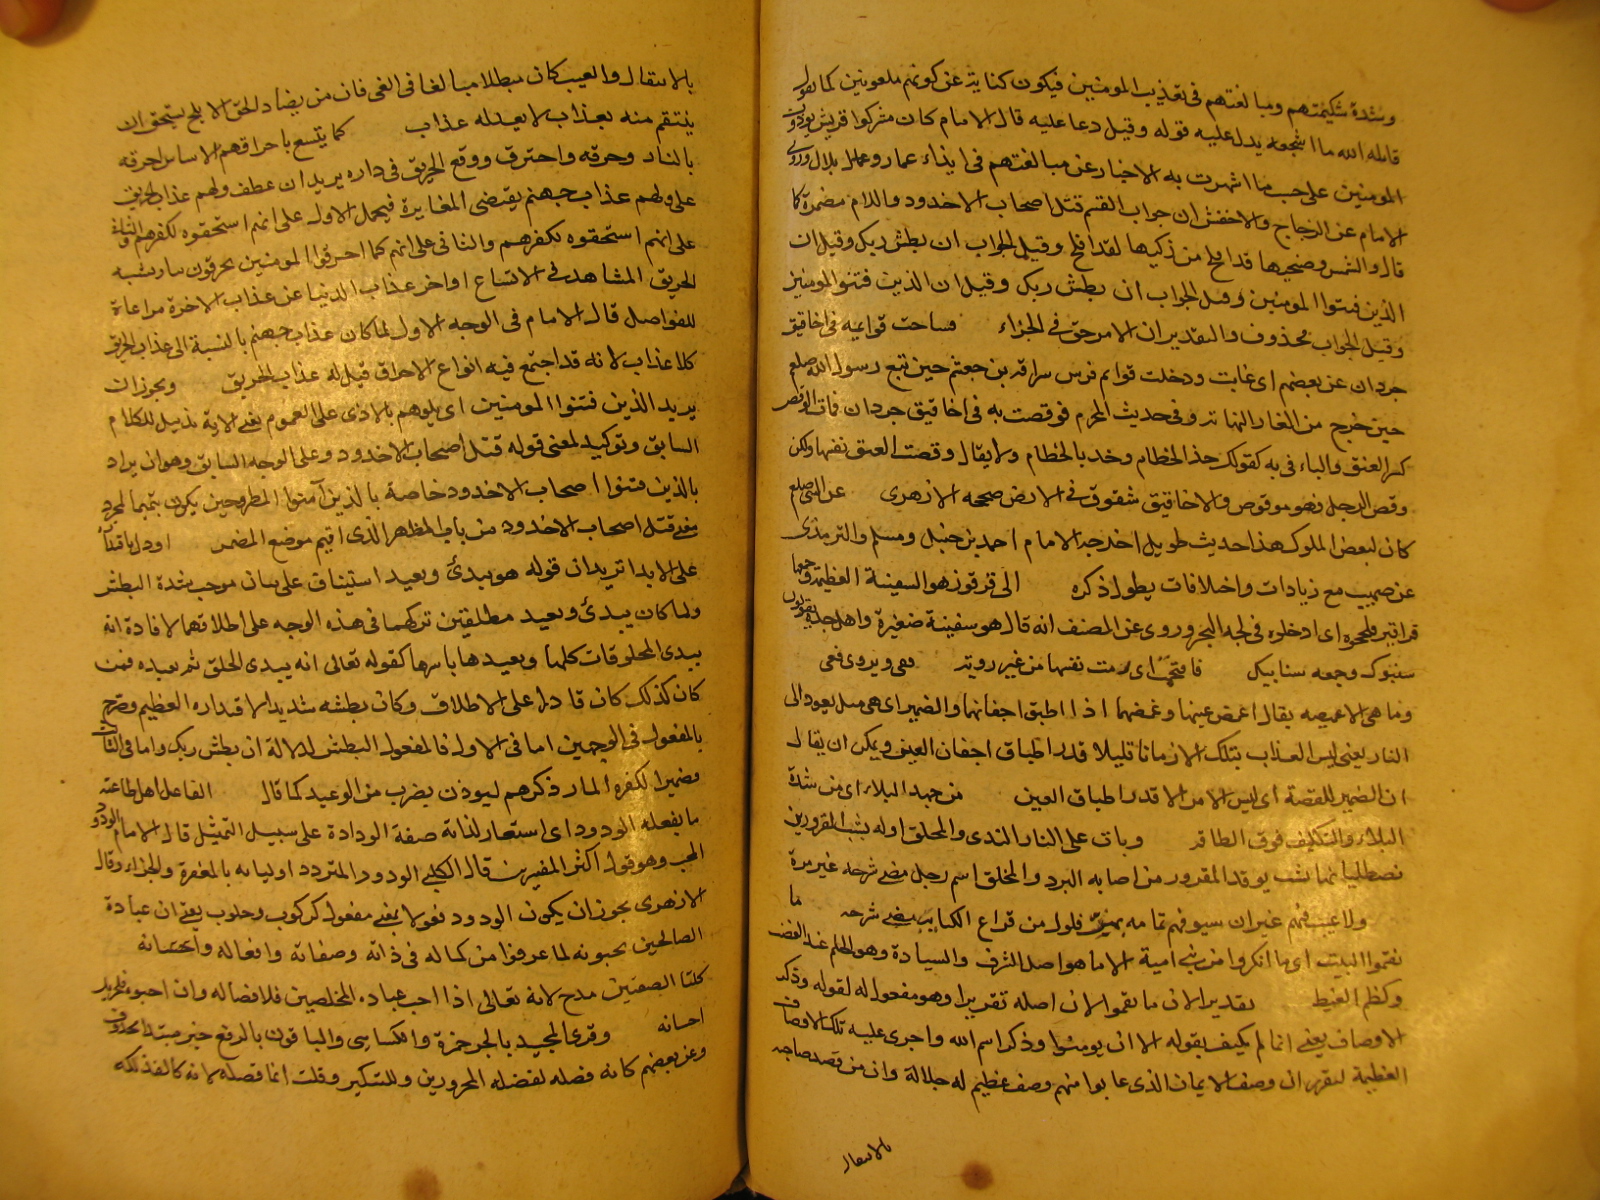 وشدة شكيمتهم ومبالغتهم فى تعذيب المومنين فيكون كناية عن كونهم ملعونين كما يقول
قاتله الله ما اشجعه يدل عليه قوله وقيل دعا عليه قال الامام كان مشركوا قريش يوذون
المومنين على حسب ما اشهرت به الاخبار عن مبالغتهم فى ايذاء عمار وبلال وروى
الامام عن الزجاج والاخفش ان جواب القسم قتل اصحاب الاخدود واللام مضمرة كما
قال والشمس وضحيها قد افلح من زكيها لقد افلح وقيل الجواب ان بطش ربك وقيل ان
الذين فتنوا المومنين وقيل الجواب ان بطش ربك وقيل ان الذين فتنوا المومنين
وقيل الجواب محذوف والتقدير ان الامر حق فى الجزاء فساخت قوايمه فى اخاقيق
جردان عن بعضهم اى غابت ودخلت قوايم فرس سراقة بن جعشم حين تبع رسول الله صلعم
حين خرج من الغار النهاية وفى حديث المحرم فوقصت به فى اخاقيق جردان فمات الوقص
كسر العنق والباء فى به كقولك خذ الخطام وخذ بالخطام ولا يقال وقصت العنق نفسها ولكن
وقص الرجل فهو موقوص والاخاقيق شقوق فى الارض صححه الازهرى عن النبى صلعم
كان لبعض الملوك هذا حديث طويل اخرجه الامام احمد بن حنبل ومسلم والترمذى
عن صهيب مع زيادات واختلافات يطول ذكره الى قرقور هو السفينة العظيمة وجمعها
قراقير فلججوه اى ادخلوه فى لجة البحر وروى عن المصنف انه قال هو سفينة صغيرة واهل جدة يقولون
سنبوك وجمعه سنابيك فاقتحمت اى رمت نفسها من غير روية قعى ويروى فقعى
وما هى الا غميضة يقال اغمض عينها وغمضها اذا اطبق اجفانها والضمير اى هى يعود الى
النار يعنى ليس العذاب بتلك الا زمانا قليلا قدر اطباق اجفان العين ويمكن ان يقال
ان الضمير للقصة اى ليس الامر الا قدر اطباق العين من جهد البلاء اى من شدة
البلاء والتكليف فوق الطاقة وبات على النار الندى والمحلق اوله يشب لمقرورين
يصطليانها يشب يوقد المقرور من اصابه البرد والمحلق اسم رجل مضى شرحه غير مرة
ولا عيب فيهم غير ان سيوفهم تمامه بهن فلول من قراع الكتايب مضى شرحه ما
نقموا البيت اى ما انكروا من بنى امية الا ما هو اصل الشرف والسيادة وهو الحلم عند الغضب
وكظم الغيظ تقديرا لان ما نقموا لان اصله تقريرا وهو مفعول له لقوله وذكر
الاوصاف يعنى انما لم يكتف بقوله الا ان يومنوا وذكر اسم الله واجرى عليه تلك الاوصاف
العظيمة ليقرر ان وصف الايمان الذى عابوا منهم وصف عظيم له جلالة وان من قصد صاحبه
بالانتقام
بالانتقام والعيب كان مبطلا مبالغا فى الغى فان من يضاد الحق الابلج يستحق ان
ينتقم منه بعذاب لا يعدله عذاب كما يتسع باحراقهم الاساس احرقه
بالنار وحرقه واحترق ووقع الحريق فى داره يريد ان عطف ولهم عذاب الحريق
على ولهم عذاب جهنم يقتضى المغايرة فيحمل الاول على انهم استحقوه لكفرهم والثانى
على انهم استحقوه لكفرهم والثانى على انهم كما احرقوا المومنين يحرقون بنار شبه
الحريق المشاهد فى الاتساع او اخر عذاب الدنيا عن عذاب الاخرة مراعاة
للفواصل قال الامام فى الوجه الاول لما كان عذاب جهنم بالنسبة الى عذاب الحريق
كلا عذاب لانه قد اجتمع فيه انواع الاحراق قيل له عذاب الحريق ويجوز ان
يريد الذين فتنوا المومنين اى بلوهم بالاذى على العموم يعنى الاية تذييل للكلام
السابق وتوكيد لمعنى قوله قتل اصحاب الاخدود وعلى الوجه السابق وهو ان يراد
بالذين فتنوا اصحاب الاخدود خاصة بالذين آمنوا المطروحين يكون تتميما لمجرد
معنى قتل اصحاب الاخدود من باب المظهر الذى اقيم موضع المضمر او دل باقتداره
على الابدا تريد ان قوله هو يبدئ ويعيد استيناف على بيان موجب شدة البطش
ولما كان يبدئ ويعيد مطلقين تركهما فى هذه الوجه على اطلاقهما لافادة انه
يبدى المخلوقات كلها ويعيدها باسرها كقوله تعالى انه يبدى الخلق ثم يعيده فمن
كان كذلك كان قادرا على الاطلاق وكان بطشه شديدا لاقتداره العظيم وصرح
بالمفعول فى الوجهين اما فى الاول فالمفعول البطش لدلالة ان بطش ربك واما فى الثانى
فضمير الكفرة المار ذكرهم ليوذن بضرب من الوعيد كما قال الفاعل اهل طاعته
ما يفعله الودود اى استعار لذاته صفة الودادة على سبيل التمثيل قال الامام الودود
المحب وهو قول اكثر المفسرين قال الكلبى الودود المتردد الى اوليائه بالمغفرة والجزاء وقال
الازهرى يجوز ان يكون الودود فعولا بمعنى مفعول كركوب وحلوب يعنى ان عباده
الصالحين يحبونه لما عرفوا من كماله فى ذاته وصفاته وافعاله واحسانه
كلتا الصفتين مدح لانه تعالى اذا احب عباده المخلصين فلافضاله وان احبوه فلمزيد
احسانه وقرى المجيد بالجر حمزة والكسائى والباقون بالرفع خبر مبتدا محذوف
وعن بعضهم كانه فصله لفضله المجرورين وللتنكير وقلت انما فصله لانه كالفذلكة